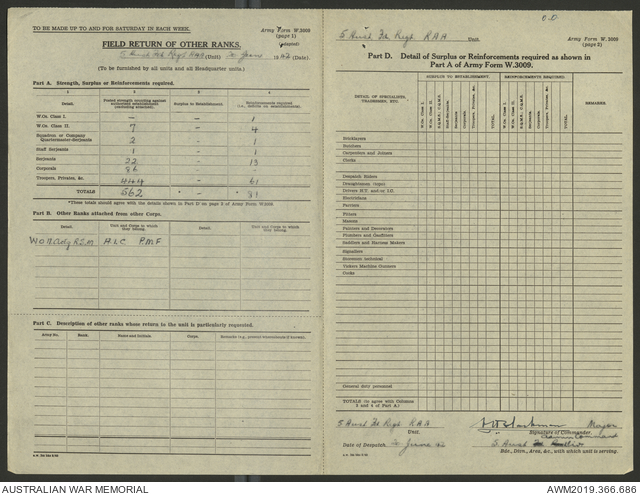 TO BE MADE UP TO AND FOR SATURDAY IN EACH WEEK.
Army Form W.3009
(page 1)
(Adapted)
FIELD RETURN OF OTHER RANKS.
5 Aust Fd Regt RAA (Unit) June 1942 (Date).
(To be furnished by all units and all Headquarter units.)
Part A. Strength, Surplus or Reinforcements required.
1 2 3 4
Detail. Surplus to Establishment. Reinforcements required
W.Os. Class I. — — 1
W.Os. Class II. 7 — 4
Squadron or Company Quartermaster-Serjeants 2 — 1
Staff Serjeants 1 — 1
Serjeants 22 — 13
Corporals 86 — —
Troopers, Privates, &c. 444 — 61
TOTALS 562 * — * 81
*These totals should agree with the details shown in Part D on page 2 of Army Form W.3009
Part B. Other Ranks attached from other Corps.
Detail. Unit and Corps to which they belong. Detail. Unit and Corps to which they belong.
A.L.C. P.M.F
Part C. Description of other ranks whose return to the unit is particularly requested.
Army No. Rank. Name and Initials. Corps. Remarks (e.g., present whereabouts if known).
O.O.
5 Aust Fd Regt RAA Unit.
Army Form W. 3009
(page 2)
Part D. Detail of Surplus or Reinforcements required as shown in
Part A of Army Form W.3009.
DETAIL OF SPECIALISTS, TRADESMEN, ETC.
SURPLUS TO ESTABLISHMENT. REINFORCEMENTS REQUIRED. REMARKS
W.Os. Class I. W.Os. Class II. Staff-Serjeants. Serjeants. Corporals. Troopers, Privates, &c. TOTAL.
W.Os. Class I. W.Os. Class II. Staff-Serjeants. Serjeants. Corporals. Troopers, Privates, &c. TOTAL.
Bricklayers
Butchers
Carpenters and Joiners
Clerks
Despatch Riders
Draughtsmen
Drivers H.T. and/or I.C.
Electricians
Farriers
Fitters
Masons
Painters and Decorators
Plumbers and Gasfitters
Saddlers and Harness Makers
Signallers
Storemen technical
Vickers Machine Gunners
Cooks
General duty personnel
TOTALS (to agree with Columns 3 and 4 of Part A.)
5 Aust Fd Regt RAA
Unit.
Major
Signature of Commander.
Date of Despatch June 42
5 Aust
Bde., Divn., Area, &c., with which unit is serving.
AUSTRALIAN WAR MEMORIAL
AWM2019.366.686